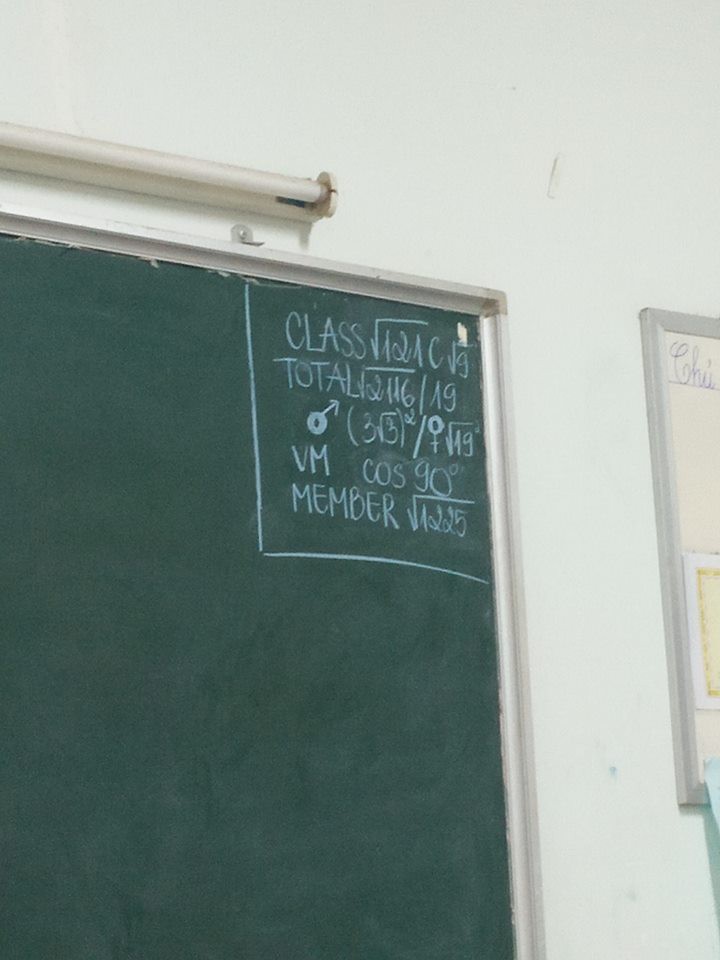 CLASS √121 C √9
TOTAL √2116 / 19
♂ (3√3)² / ♀ √19²
VM cos 90°
MEMBER √1225
Chú